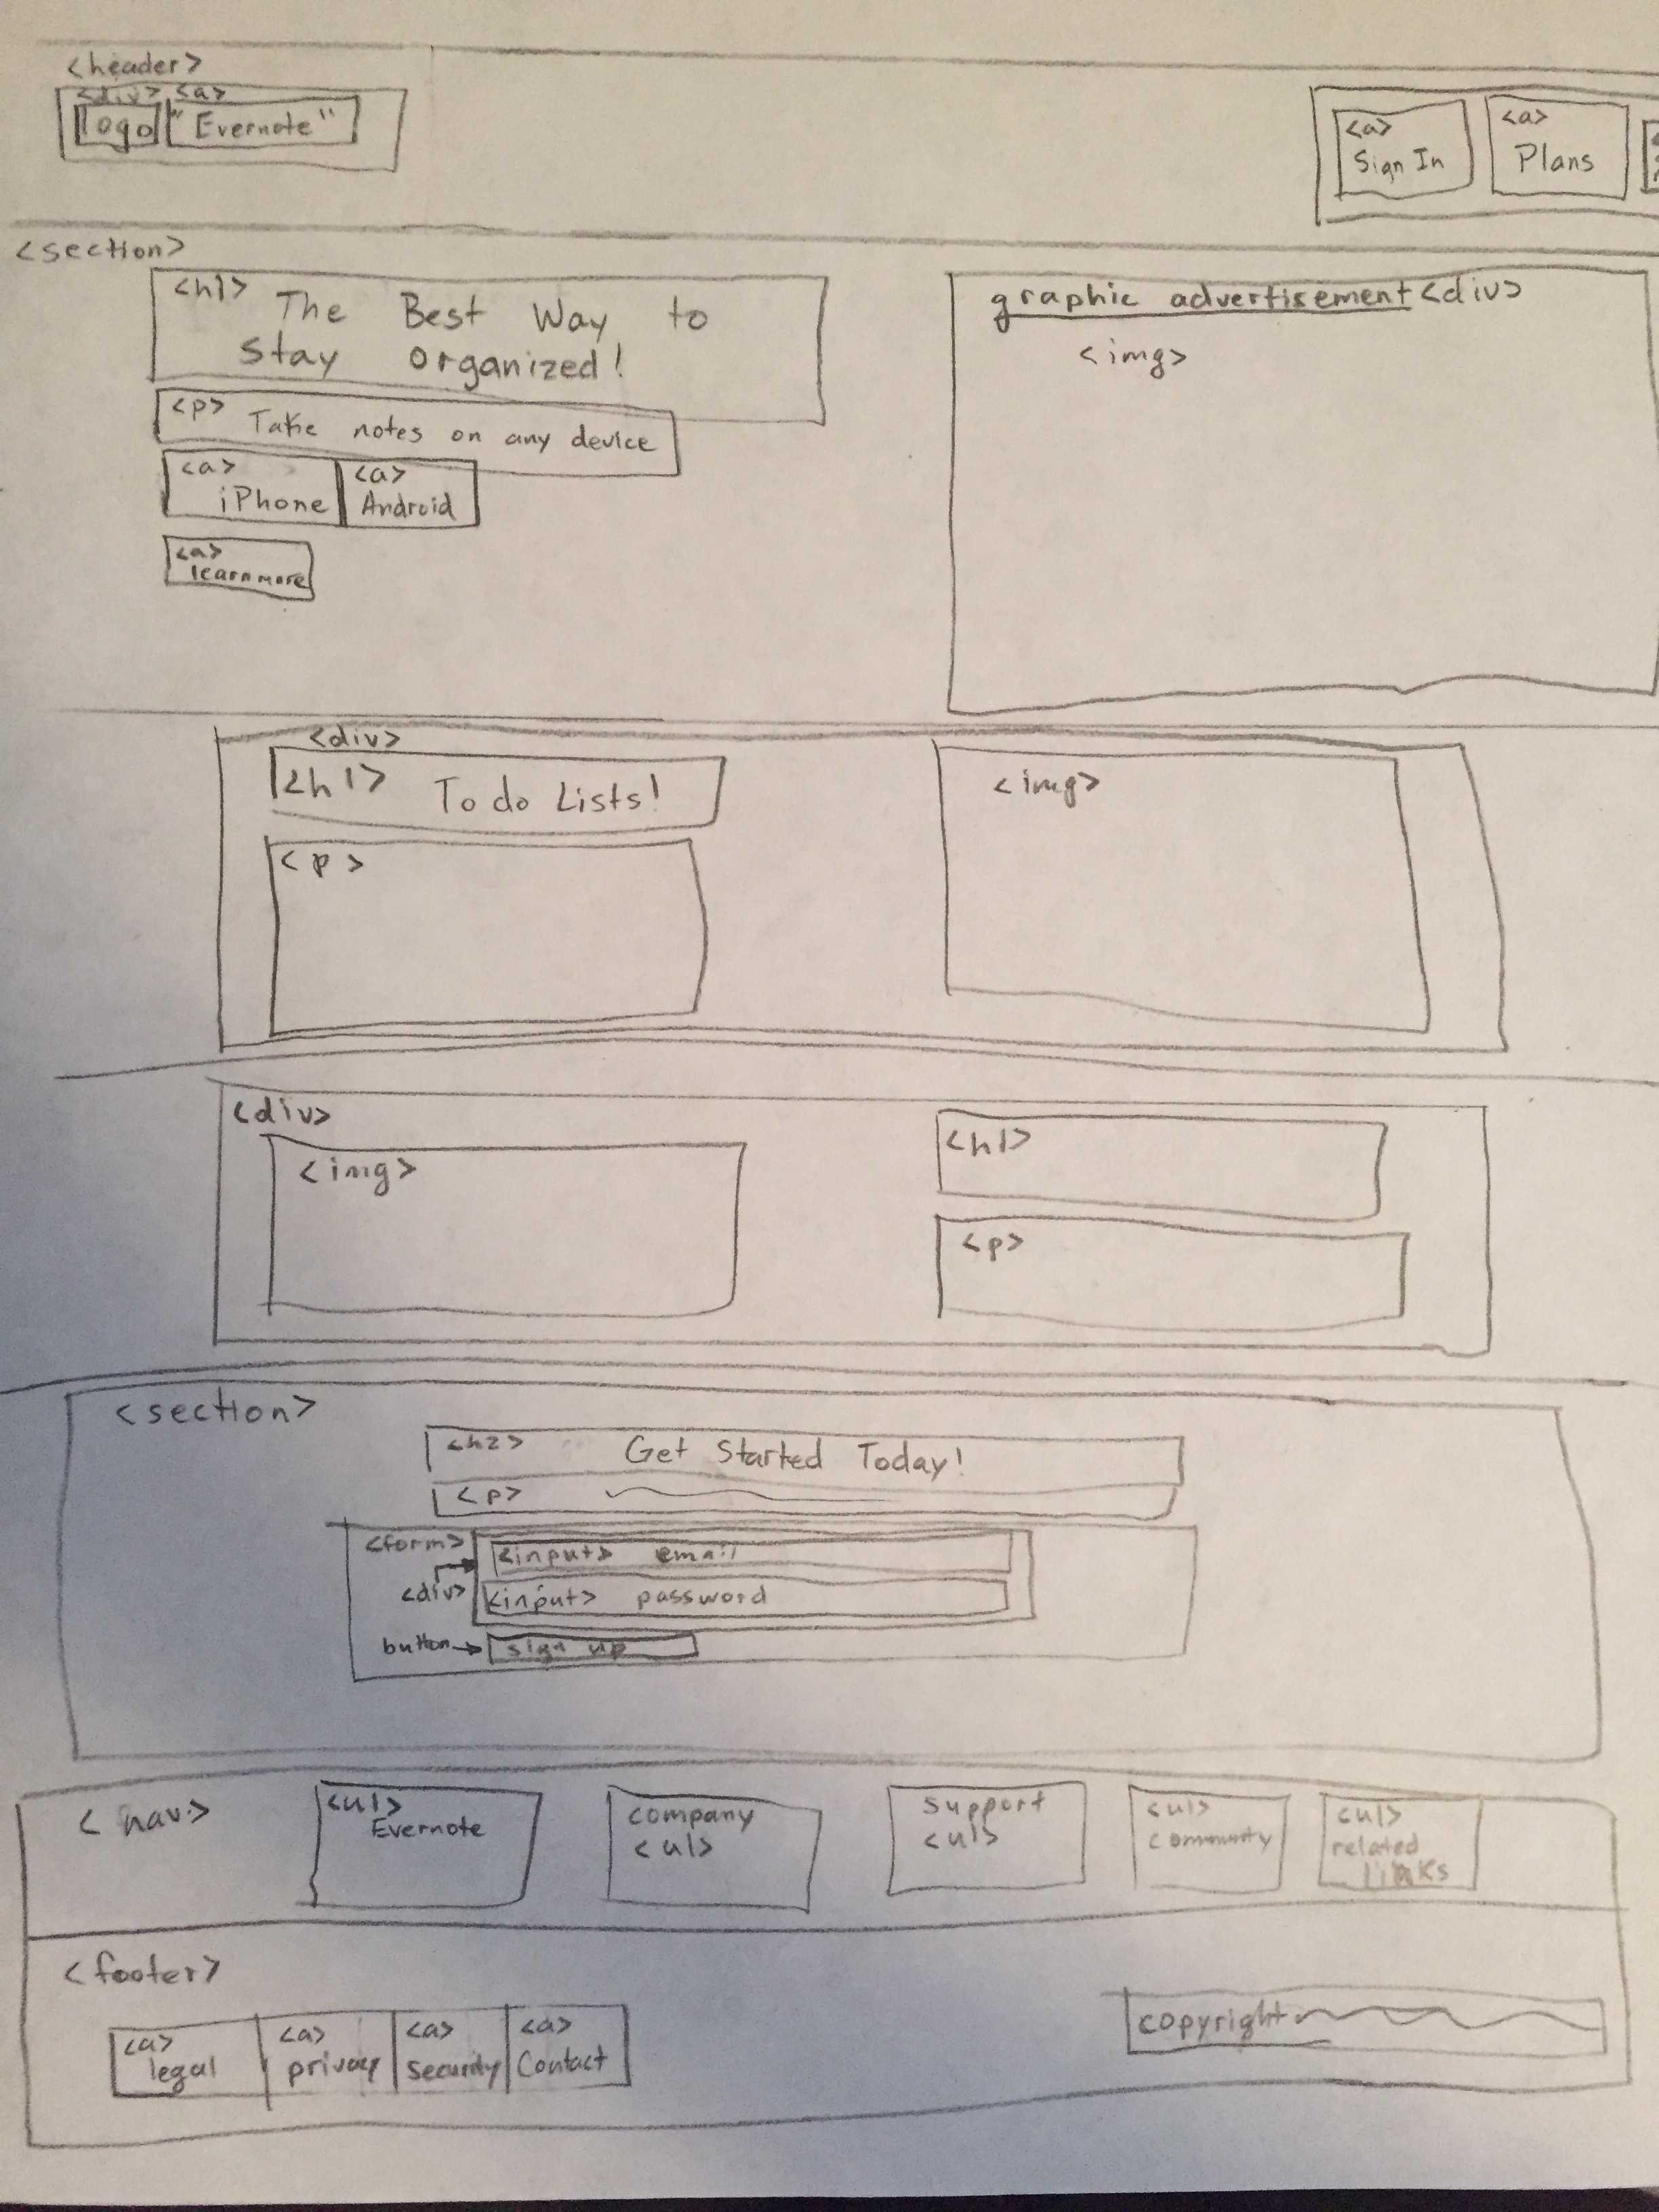 <header>
<div> <a>
logo "Evernote"
<a> Sign In
<a> Plans
<section>
<h1> The Best Way to
Stay Organized!
graphic advertisement <div>
<img>
<p> Take notes on any device
<a> iPhone
<a> Android
<a> learn more
<div>
<h1> To do Lists!
<p>
<img>
<div>
<img>
<h1>
<p>
<section>
<h2> Get Started Today!
<p>
<form> <input> email
<div> <input> password
button sign up
<nav>
<ul> Evernote
company <ul>
support <ul>
<ul> community
<ul> related links
<footer>
<a> legal
<a> privacy
<a> security
<a> Contact
copyright